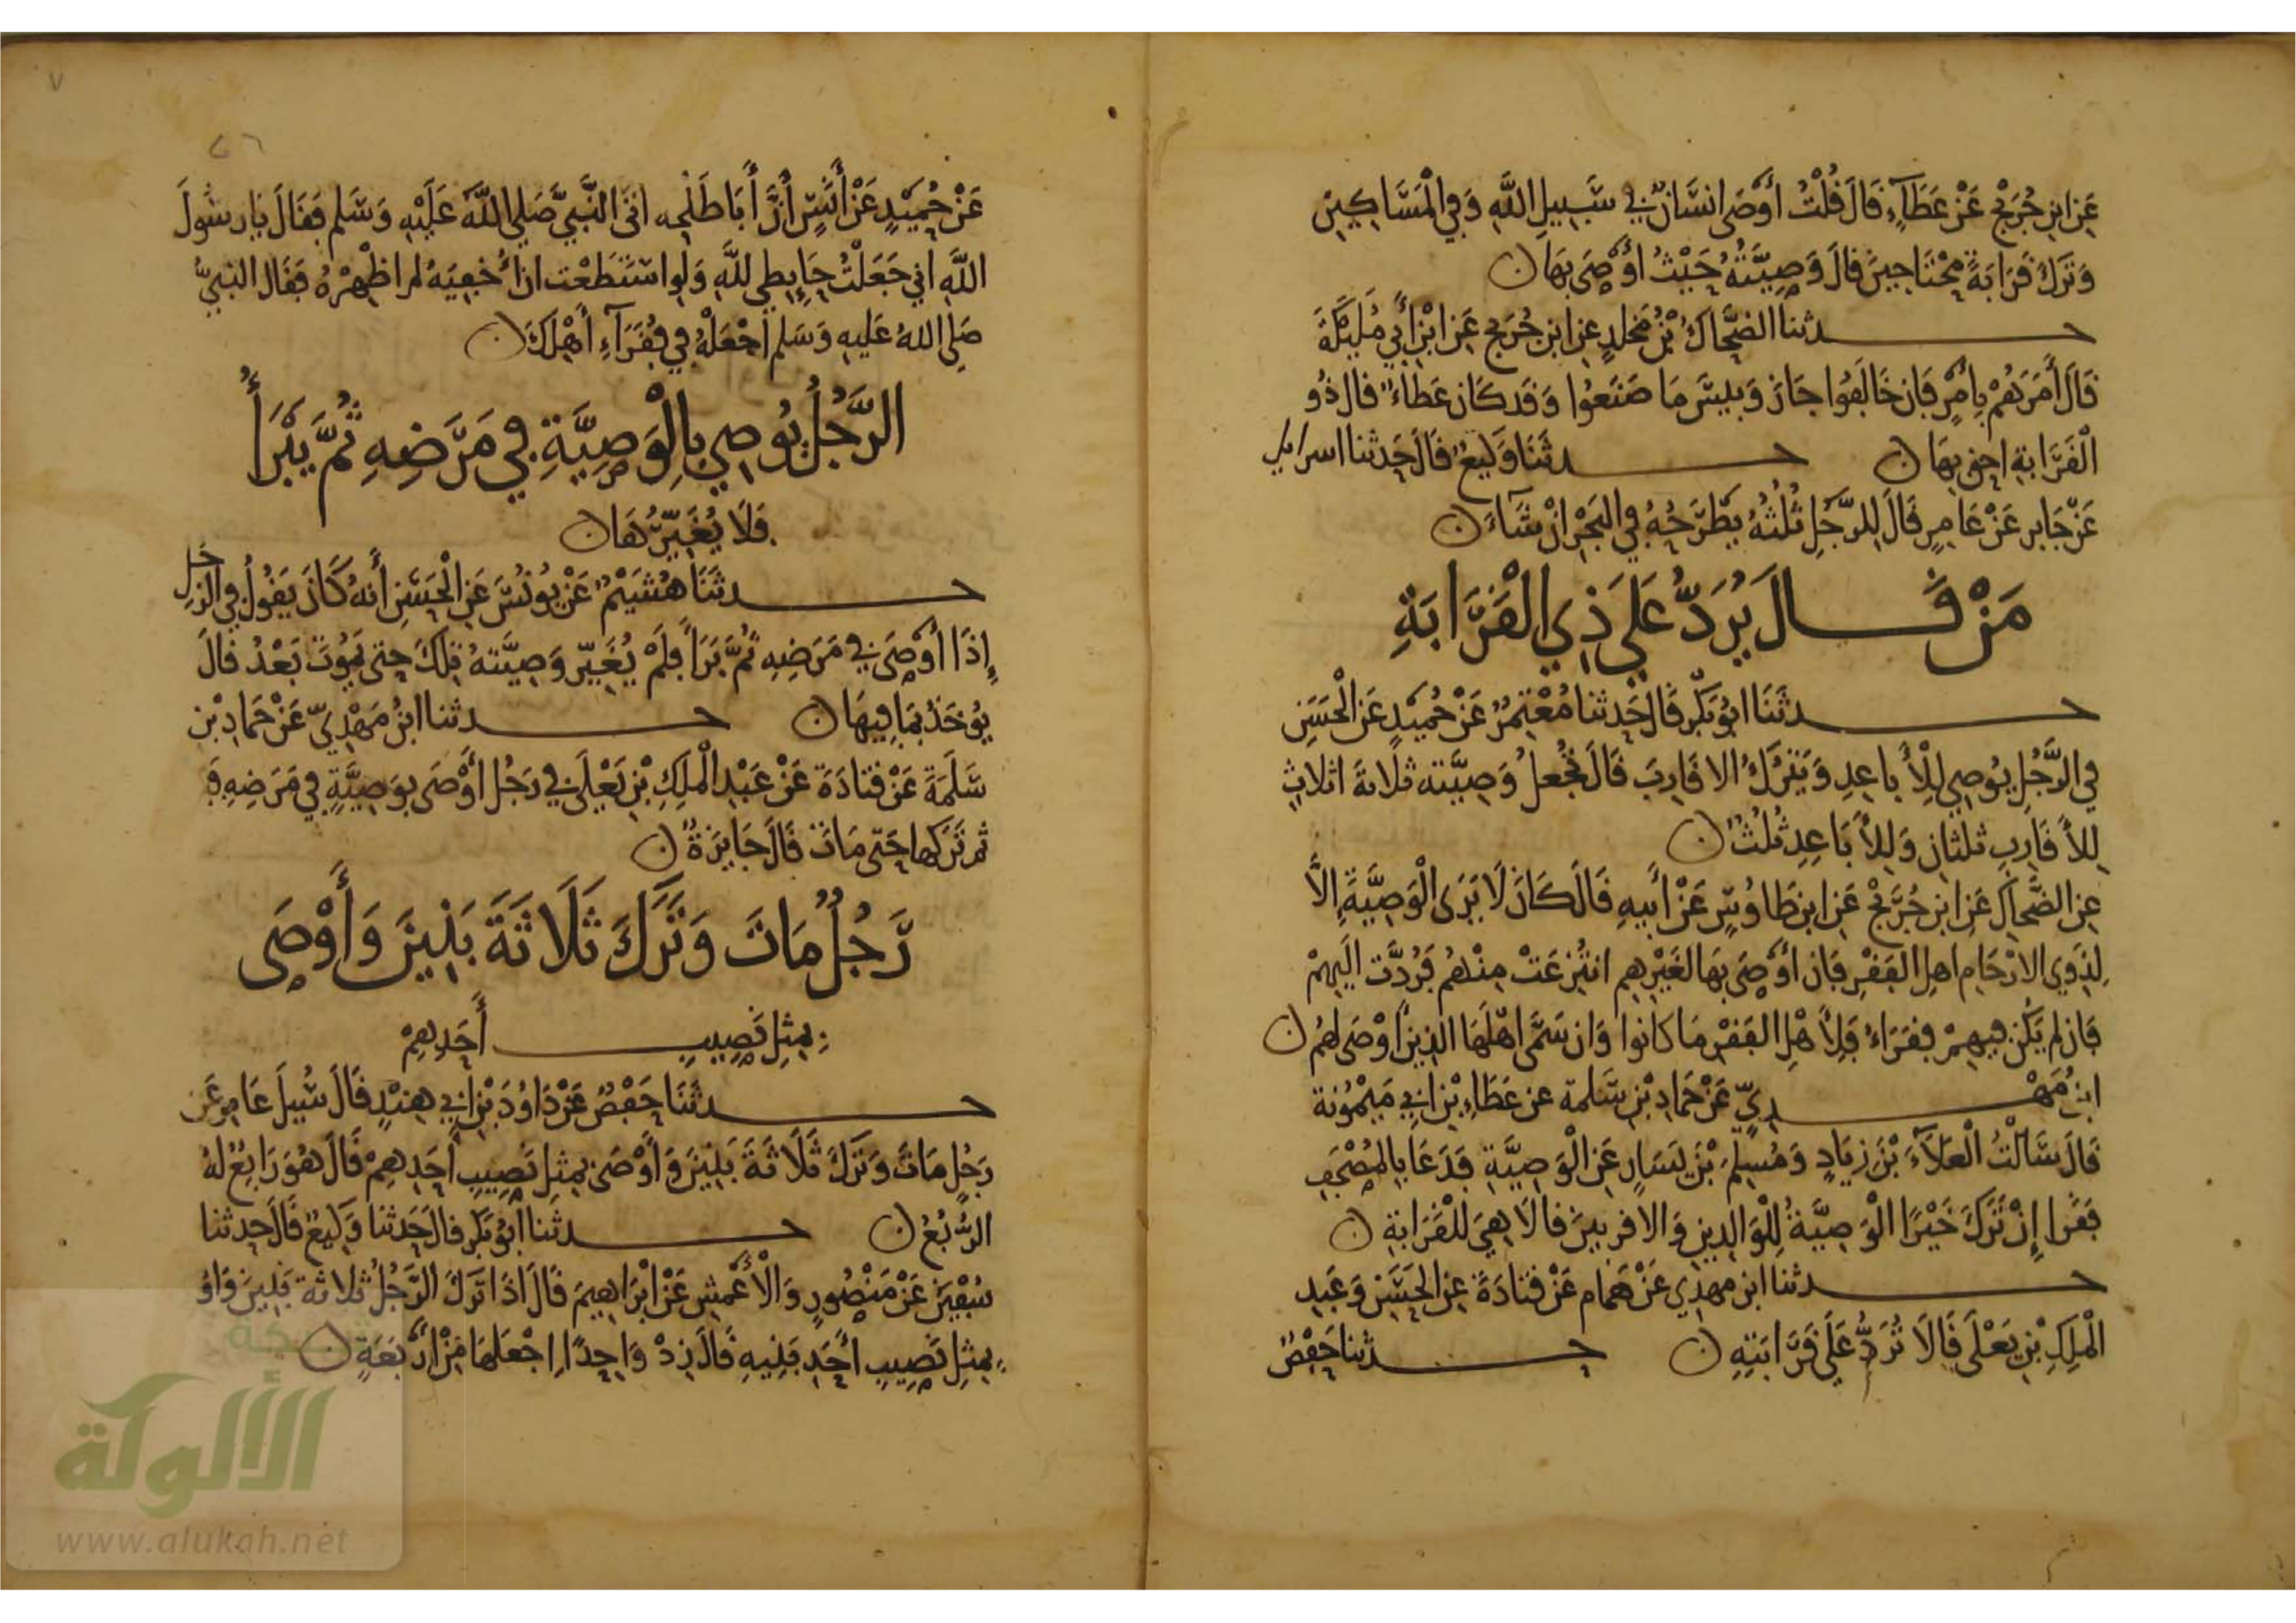 عَنِ ابن جُرَيْجٍ عَنْ عَطَآءٍ قَالَ قُلْتُ أَوْصَى انسَانٌ فِي سَبِيلِ اللَّهِ وَفِي الْمَسَاكِينِ
وَتَرَكَ قَرَابَةً مُحْتَاجِينَ قَالَ وَصِيَّتُهُ حَيْثُ أَوْصَى بِهَا ن
حدثنا الضَّحَّاكُ بْنُ مَخلدٍ عن ابن جُرَيج عَن ابْنِ أَبِي مُلَيْكَةَ
قَالَ أَمَرَهُمْ بِأَمْرٍ فَإن خَالَفُوا جَازَ وَبِيسَ مَا صَنَعُوا وَقَد كَانَ عَطَاءٌ قال ذُو
الْقَرَابةِ احق بِهَا ن حدثَنَا وَكِيعٌ قَالَ حَدثنا اسرايل
عَنْ جَابر عَنْ عَامِرٍ قَالَ لِلرَّجُلِ ثُلُثُهُ يَطْرَحُهُ فِي الْبَحْرِ انْ شَآءَ ن
مَنْ قَالَ يُرَدُّ عَلَى ذِي الْقَرَابَةِ
حدثَنَا ابُو بَكْرٍ قَال حَدثنا مُعْتَمِرٌ عَنْ حُمَيْدٍ عَنِ الْحَسَنِ
فِي الرَّجُلِ يُوصِي لِلْأَباعِدِ وَيَتْرُكُ الاقَارِبَ قَالَ تُجْعلُ وَصِيَّته ثلاثةَ اثلاثٍ
لِلأَقَارِبِ ثلثانِ وَلِلأَبَاعِدِ ثُلُثٌ ن
عنِ الضَّحاك عَنِ ابن جُرَيْجٍ عَنِ ابن طَاوُسٍ عَنْ أَبيهِ قَالَ كَانَ لَا يَرَى الْوَصِيَّةَ الاَّ
لِذَوِي الارْحَامِ اهل الفَقْرِ فَان أَوْصَى بِهَا لغَيْرِهِم انتُزِعَتْ مِنْهُم فَرُدَّت الَيهِمْ
فَان لم يَكُن فيهِمْ فقَرَاءُ فَلِأَهْلِ الفَقْرِ مَا كانوا وَان سَمَّى اهْلَهَا الذِينَ أَوْصَى لهُم ن
ابنُ مَهْدِيٍّ عَنْ حَمَادِ بْنِ سَلمة عن عَطَاءِ بْنِ ابي مَيْمُونة
قَالَ سَأَلْتُ الْعَلَآءَ بْنَ زِيَادٍ وَمُسْلِمَ بْنَ يَسَارٍ عَنِ الْوَصِيَّةِ فَدَعَا بِالمُصْحَفِ
فَقَرا إِنْ تَرَكَ خَيْرًا الْوَصِيَّةُ لِلْوَالِدَينِ وَالاقربينَ قالَا هِيَ للقَرَابَةِ ن
حدثنا ابن مهدِي عَنْ هَمام عَنْ قتَادَةَ عنِ الحَسَنِ وَعَبدِ
الْمَلِكِ بْنِ يَعْلَى قَالَا تُرَدُّ عَلَى قَرَابَتِهِ ن حدثنا حَفْصٌ
٧
٢٦
عَنْ حُمَيْدٍ عَنْ أَنَسٍ أَنَّ أَبَا طَلْحه اتَى النَّبِيَّ صَلى اللَّهُ عَلَيْهِ وَسَلم فقَالَ يا رسُولَ
اللَّهِ اني جَعَلْتُ حَايِطِي للَّهِ وَلَو استَطَعْت ان أُخفِيَهُ لم اظْهِرْهُ فقَال النبيُّ
صَلى اللهُ عَليهِ وَسَلم اجْعَلْهُ فِي فُقَرَآءِ أَهْلِكَ ن
الرَّجُلُ يُوصِي بِالْوَصِيَّةِ فِي مَرَضِهِ ثُمَّ يَبْرَأُ
فَلَا يُغَيِّرُهَا ن
حدثَنَا هُشَيْمٌ عَنْ يُونُسَ عَنِ الْحَسَنِ أَنهُ كَانَ يَقُولُ فِي الرَّجُلِ
إِذَا أَوْصَى فِي مَرَضِهِ ثُمَّ بَرَأَ فَلَمْ يُغَيِّر وَصِيَّتهُ تِلْكَ حتى يَمُوتَ بَعْدُ قَالَ
يُوخَذُ بِمَا فِيهَا ن حدثنا ابنُ مَهْدِيٍّ عَنْ حَمادِ بْنِ
سَلَمَةَ عَنْ قتَادَةَ عَنْ عَبْدِ الْمَلِكِ بْنِ يَعْلَى فِي رَجُل أَوْصَى بوَصِيَّةٍ فِي مَرَضِهِ فَ
ثم تَرَكَها حَتى مَاتَ قَالَ جَايِزَةٌ ن
رَجُلٌ مَاتَ وَتَرَكَ ثَلَاثَةَ بَنِينَ وَأَوْصَى
بِمِثلِ نَصِيبِ أَحَدِهِمْ
حدثَنَا حَفْصٌ عَنْ دَاوُدَ بْنِ ابِي هِنْدٍ قَالَ سُيلَ عَامِرٌ عَن
رَجُلٍ مَاتَ وَتَرَكَ ثَلَاثَةَ بَنِينَ وَأَوْصَى بِمِثلِ نَصِيبِ أَحَدِهِمْ قَالَ هُوَ رَابِعٌ لهُ
الرُّبُعُ ن حدثنا أَبُو بَكْرٍ قالَ حَدثنا وَكِيعٌ قَالَ حدثنا
سُفْيَن عَنْ مَنْصُورٍ وَالْأَعْمشِ عَنْ ابْرَاهِيمَ قَالَ اذَا تَرَكَ الرَّجُلُ ثلاثة بَنِينَ وَاوْ
بِمِثلِ نَصِيبِ أَحَدِ بَنِيهِ قَالَ زِدْ وَاحِدًا اجْعَلهَا مِنْ ارْبَعَةٍ ن
شبكة
الألوكة
www.alukah.net